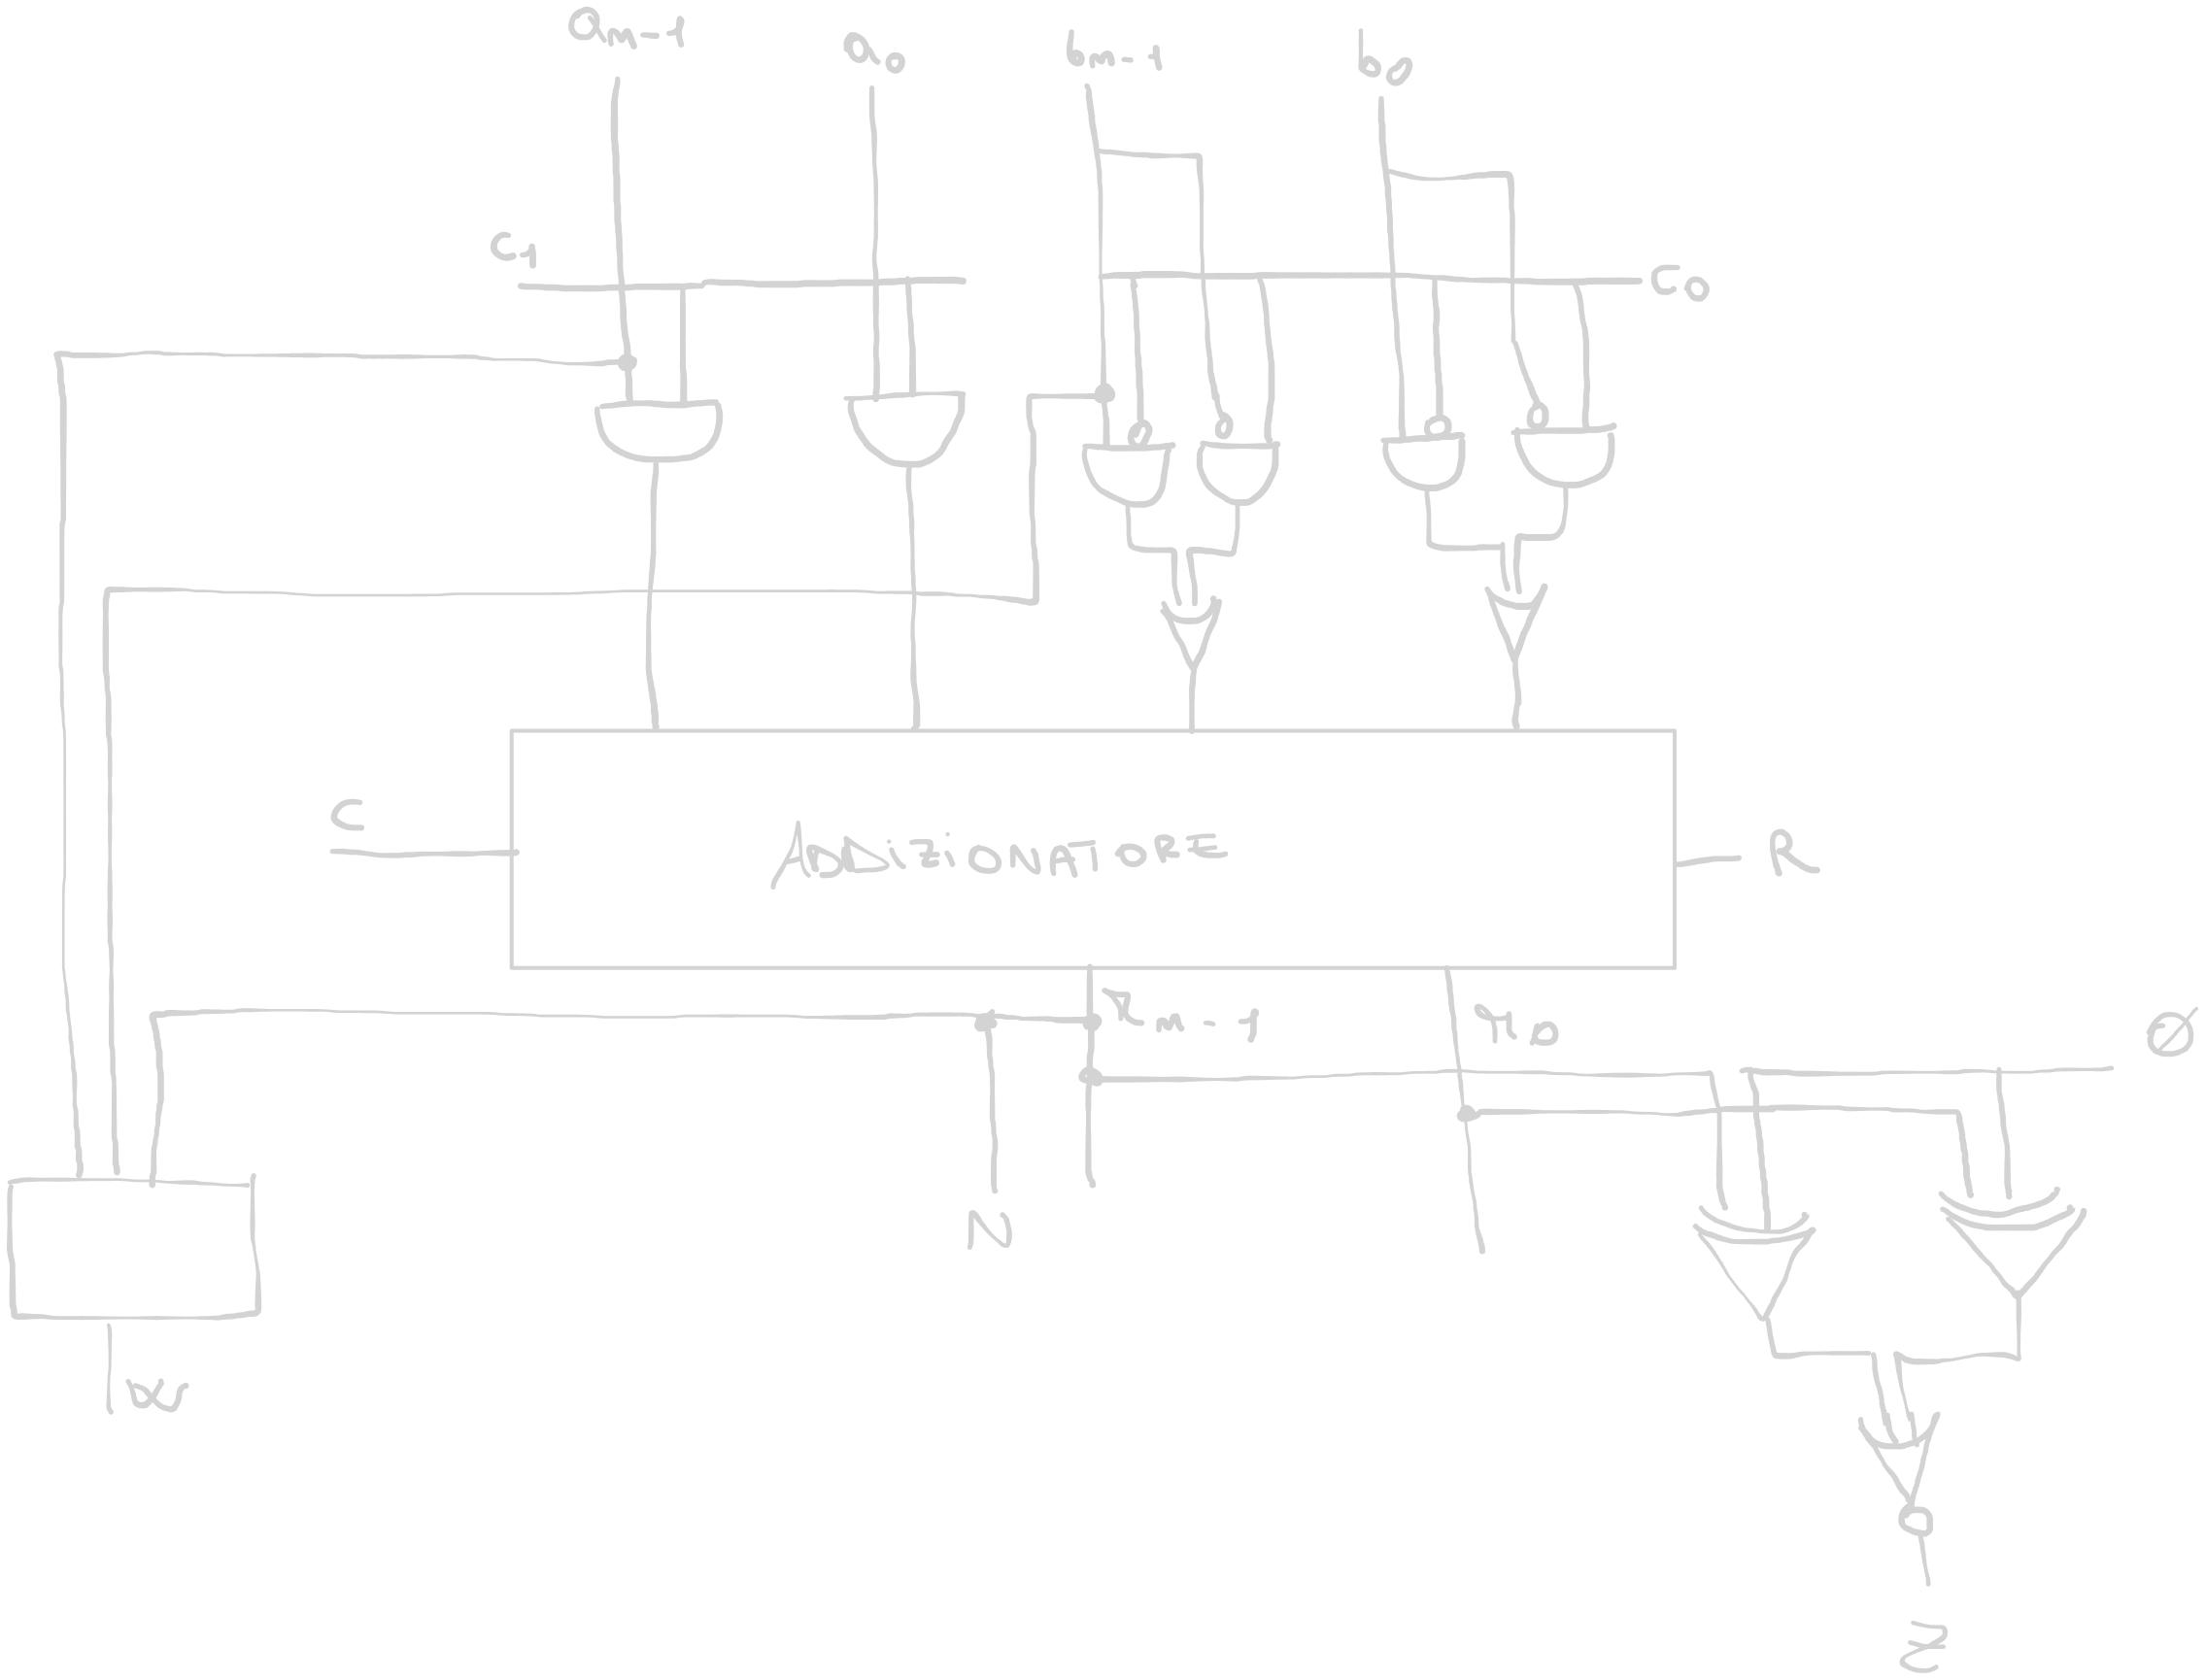 an-1
a0
bn-1
b0
C1
C0
C
ADDIZIONATORE
R
rn-1
r0
0
N
α
Z